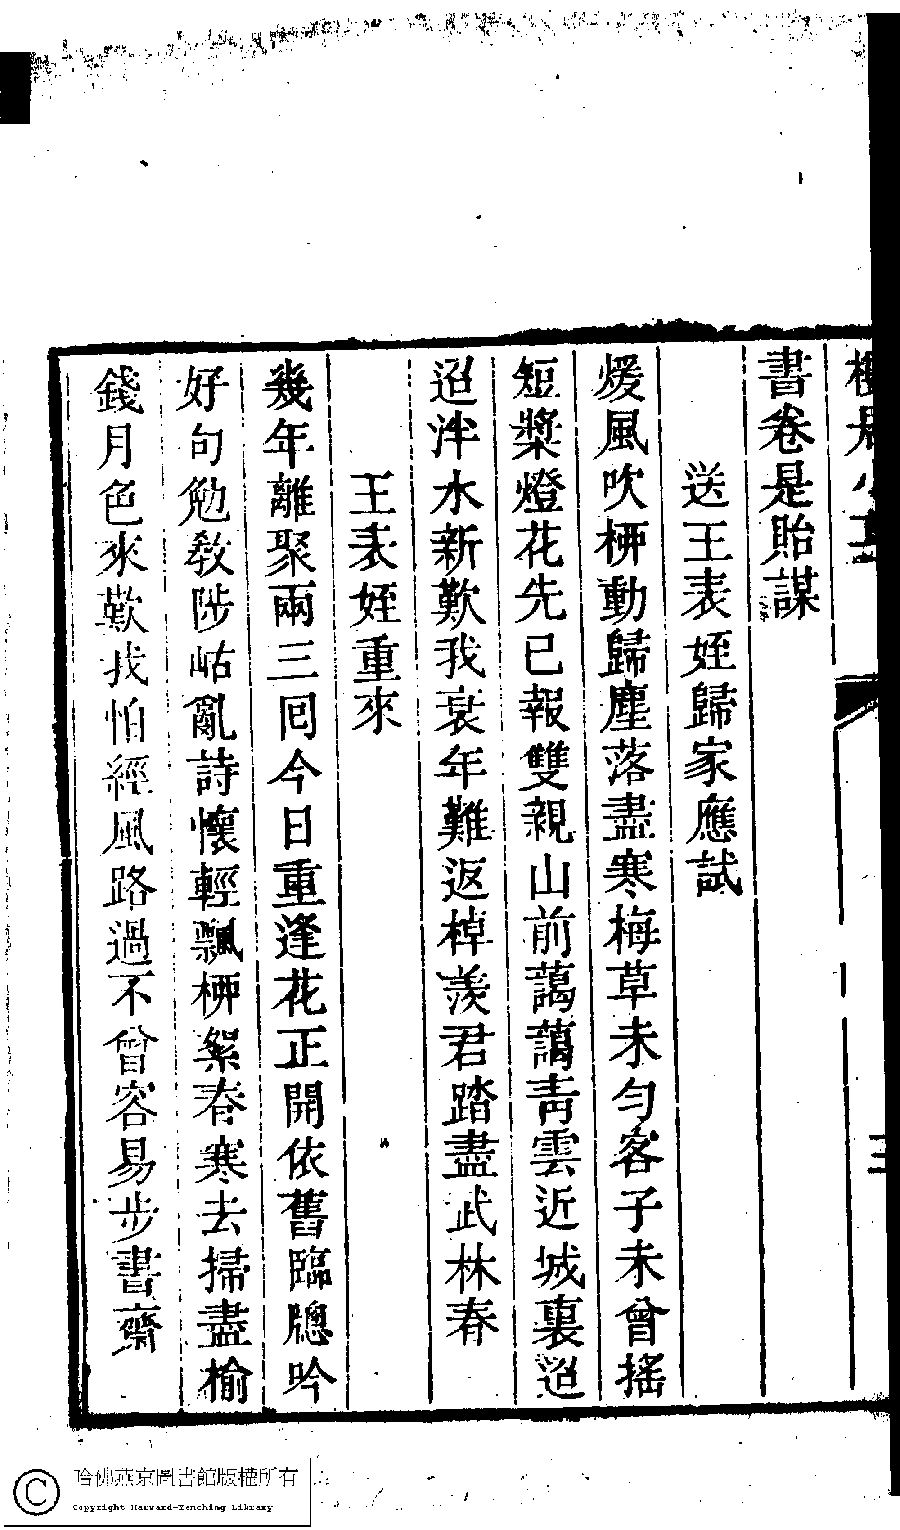 三
書卷是貽謀
送王表姪歸家應試
煖風吹柳動歸塵落盡寒梅草未勻客子未曾搖
短槳燈花先已報雙親山前藹藹靑雲近城裏迢
迢泮水新歎我衰年難返棹羨君踏盡武林春
王表姪重來
幾年離聚兩三回今日重逢花正開依舊臨牕吟
好句勉敎陟岵亂詩懷輕飄柳絮春寒去掃盡榆
錢月色來歎我怕經風路過不曾容易步書齋
哈佛燕京圖書館版權所有
Copyright Harvard-Yenching Library